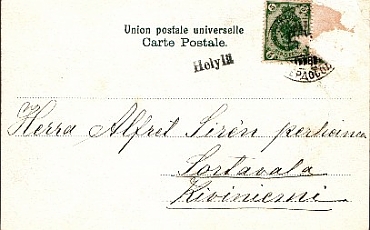 Union postale universelle
Carte Postale.
Helylä
Herra Alfret Sirén perheinen
Sortavala
Kiviniemi